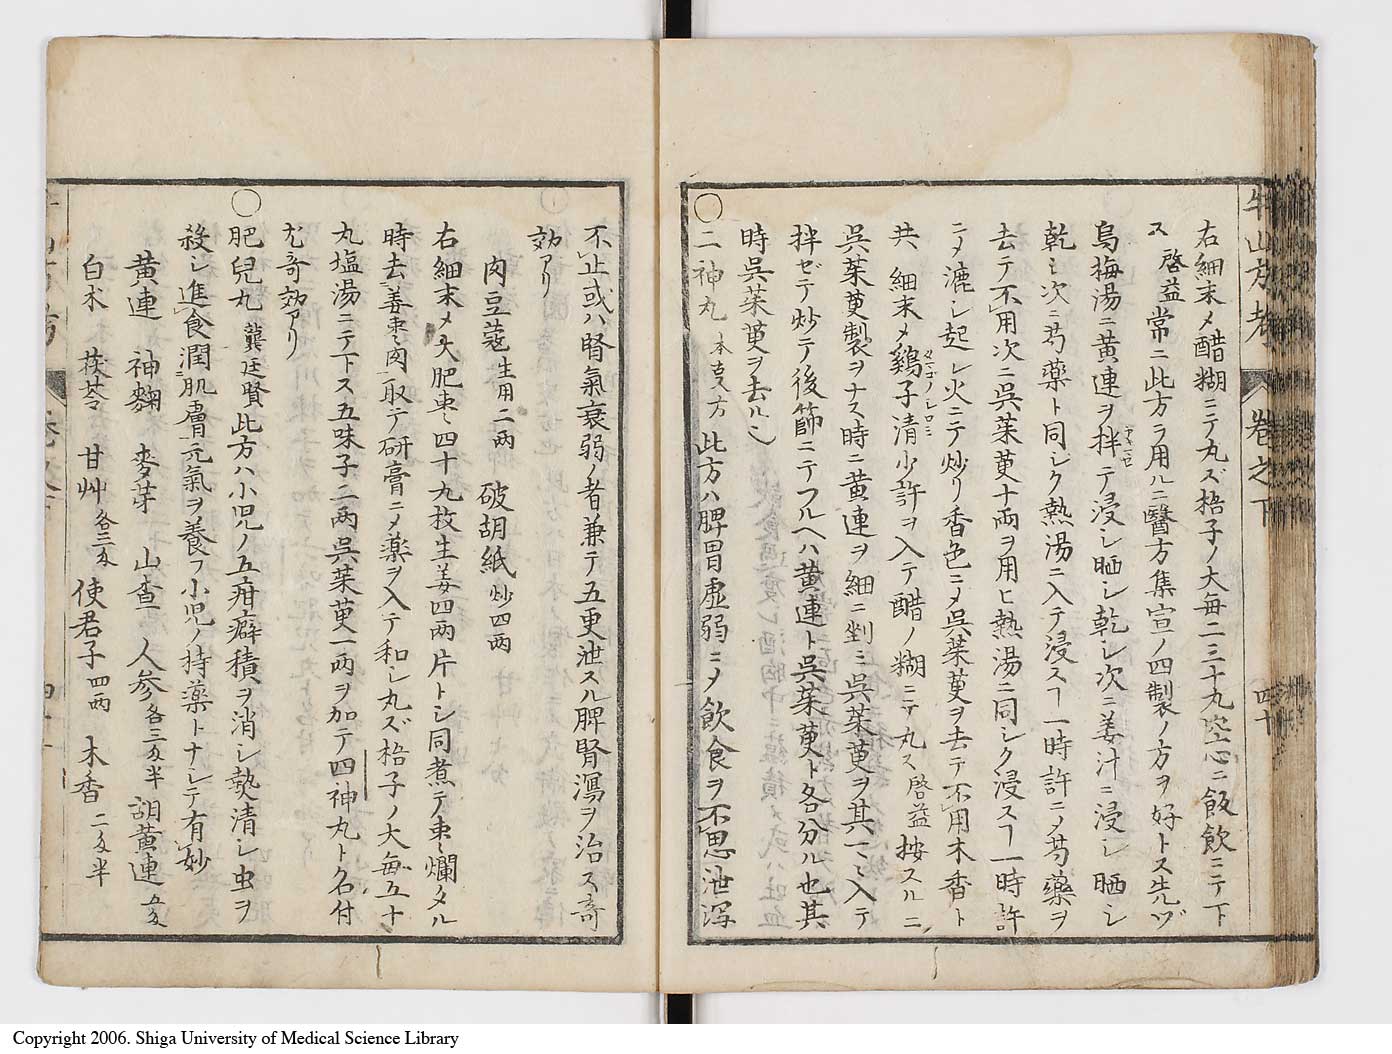 牛山方考　卷之下　四十
右細末メ醋糊ニテ丸ズ梧子ノ大毎二三十丸空心ニ飯飲ニテ下
ス　啓益常ニ此方ラ用ルニ醫方集宣ノ四製ノ方ヲ好トス先ヅ
烏梅湯ニ黄連ヲ拌テ浸シ晒シ乾シ次ニ姜汁ニ浸シ晒シ
乾シ次ニ芍藥ト同シク熱湯ニ入テ浸スヿ一時許ニノ芍藥ヲ
去テ不用次ニ呉茱萸十兩ヲ用ヒ熱湯ニ同シク浸スヿ一時許
ニメ漉シ起シ火ニテ炒リ香色ニメ呉茱萸ヲ去テ不用木香ト
共ニ細末メ鷄子清少許ヲ入テ醋ノ糊ニテ丸ス　啓益按スルニ
呉茱萸製ヲナス時ニ黄連ヲ細ニ剉ミ呉茱萸ヲ其一ニ入テ
拌ゼテ炒テ後篩ニテフルヘハ黄連ト呉茱萸ト各分ル也其
時呉茱萸ヲ去ルヘシ
○二神丸　本事方　此方ハ脾胃虚弱ニメ飲食ヲ不思泄瀉
不止或ハ腎氣衰弱ノ者兼テ五更泄スル脾腎瀉ヲ治ス奇
効アリ
肉豆蔻生用二兩　破胡紙炒四兩
右細末メ大肥棗四十九枚生姜四兩片トシ同煮テ棗爛タル
時去姜棗肉取テ研膏ニメ藥ヲ入テ和シ丸ズ梧子ノ大毎五十
丸塩湯ニテ下ス五味子二兩呉茱萸一兩ヲ加テ四神丸ト名付
尤奇効アリ
○肥兒丸　龔廷賢　此方ハ小児ノ五疳癖積ヲ消シ熱清シ虫ヲ
殺シ進食潤肌膚元氣ヲ養フ小児ノ持藥トナシテ有妙
黄連　神麴　麥芽　山査　人参各三匁半　胡黄連五匁
白朮　茯苓　甘艸各三匁　使君子四兩　木香二匁半